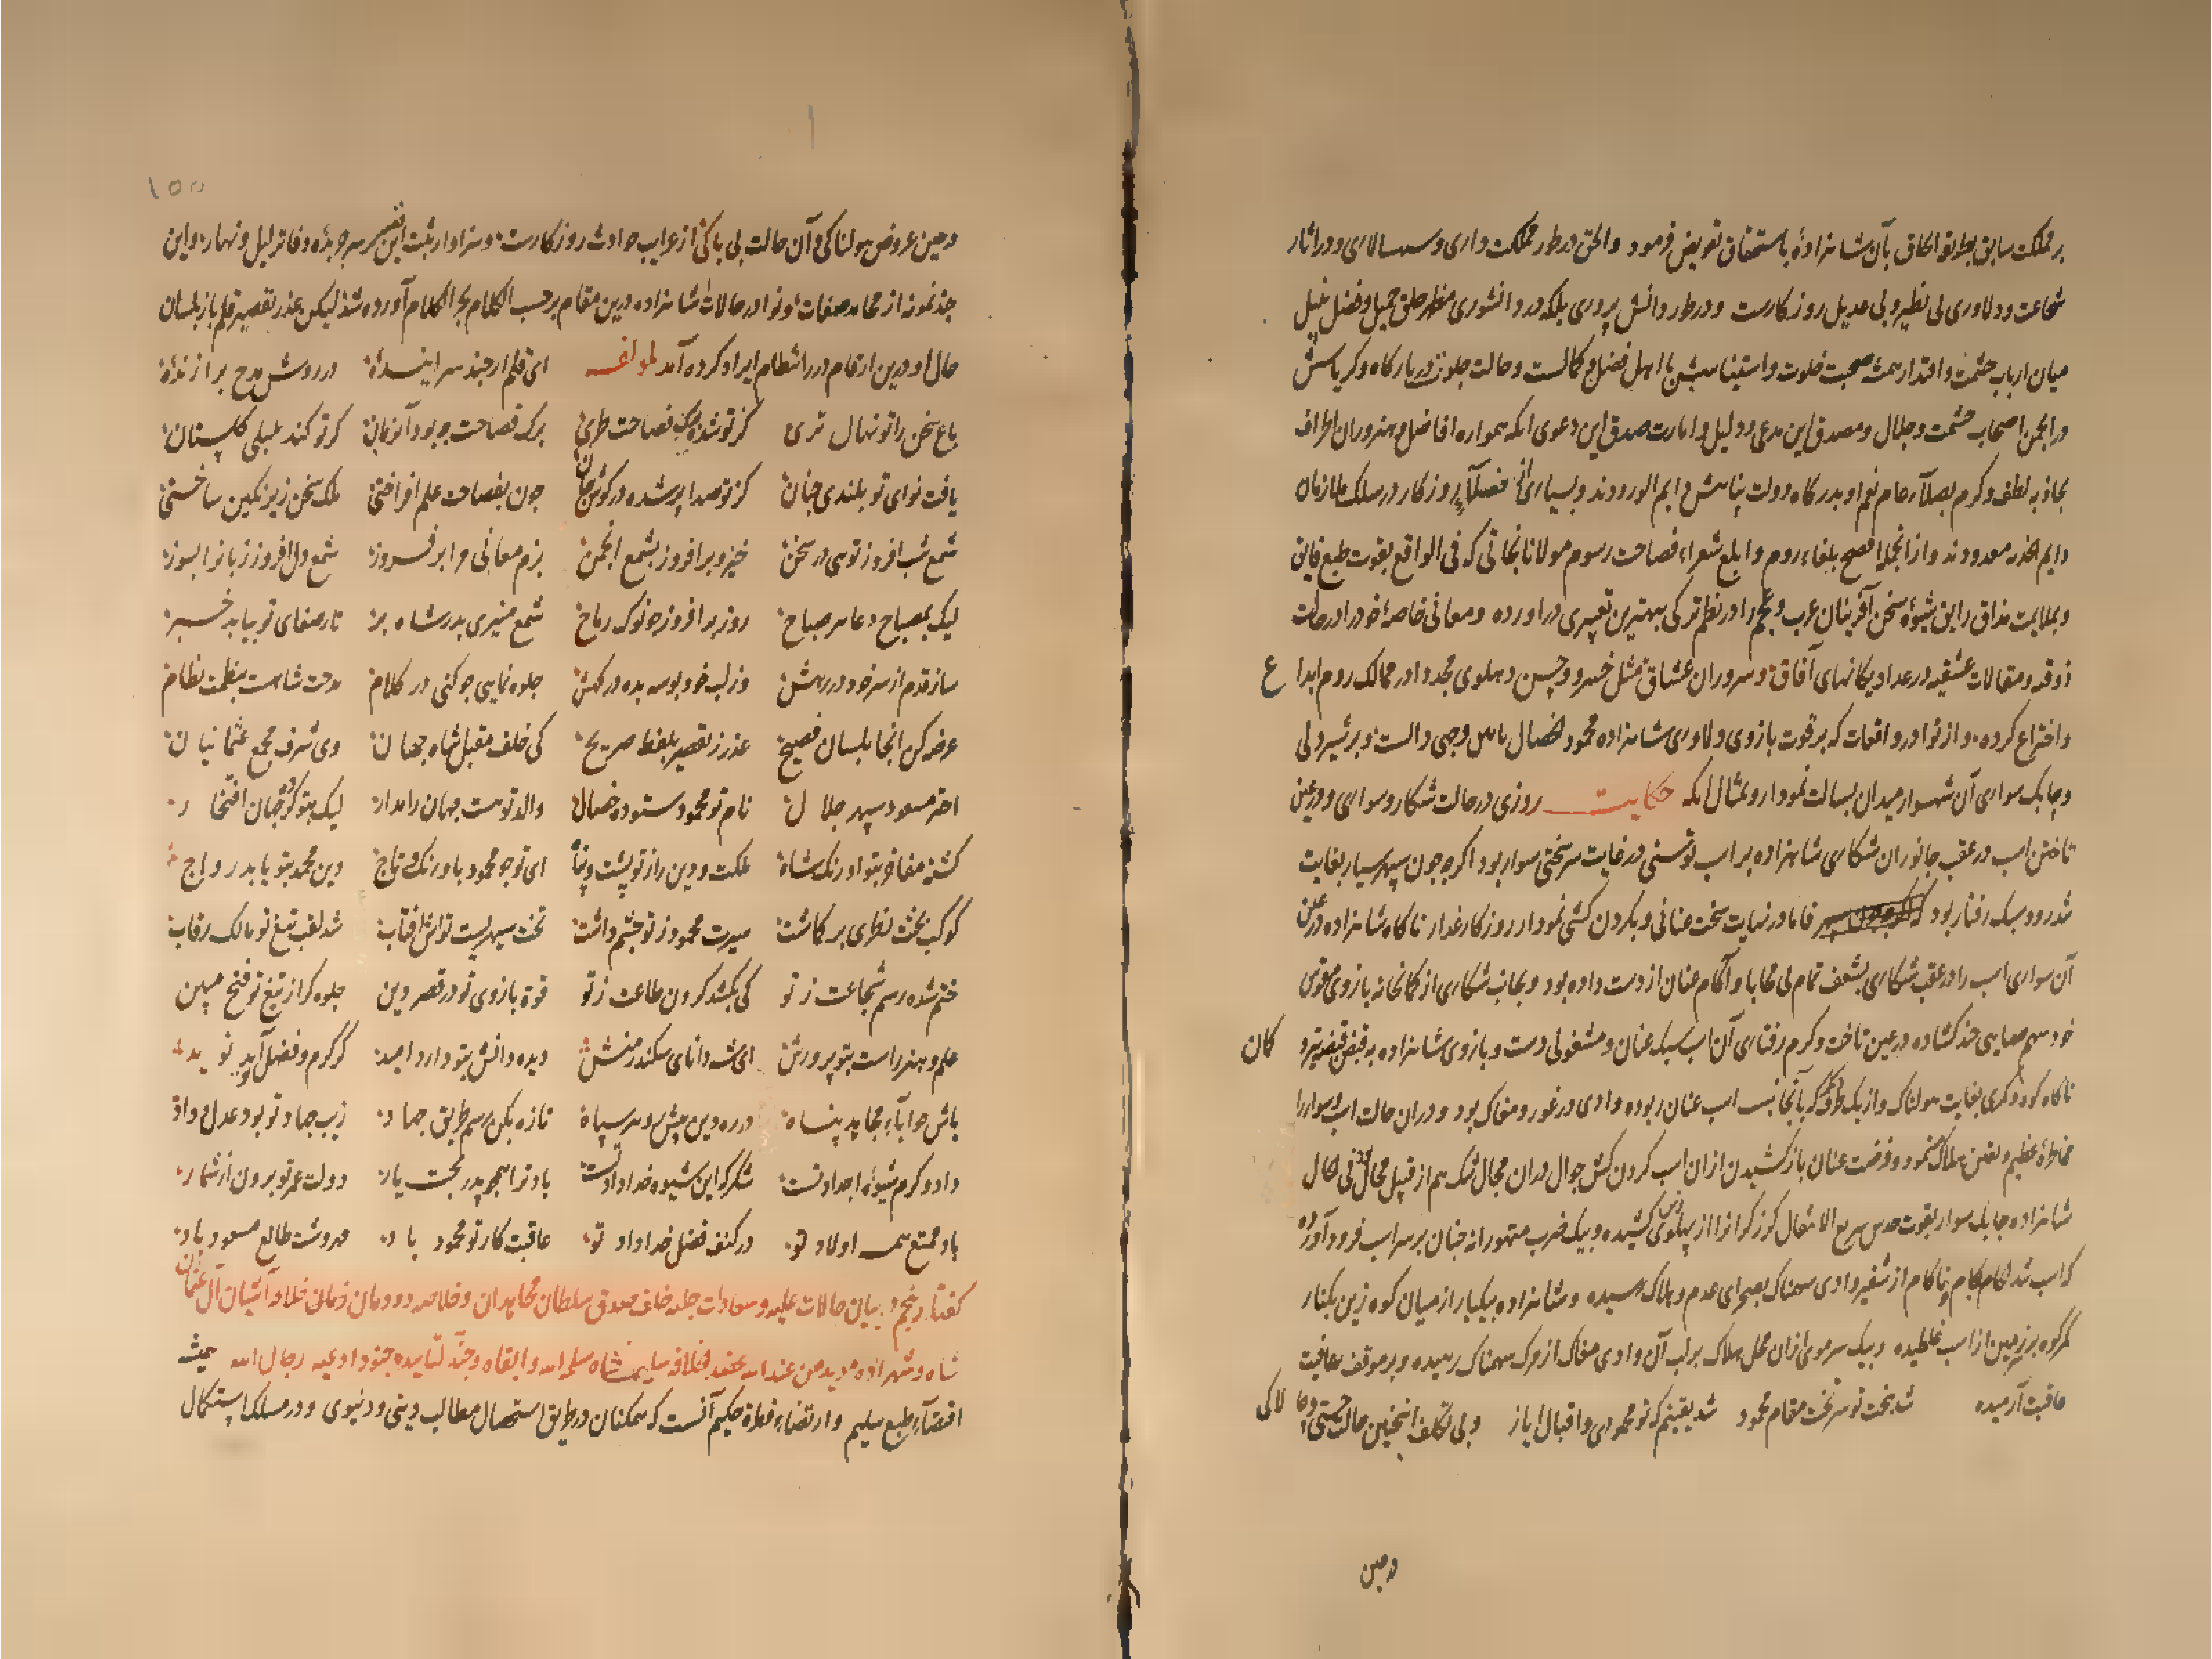 بر مملکت سابق بطریق الحاق بآن شاهزادهٔ باستحقاق تفویض فرمود والحق در طور مملکت داری و سپهسالاری و در اثار
شجاعت و دلاوری بی نظیر و بی عدیل روزکارست و در طور دانش پروری بلکه در دانشوری مظهر خلق جمیل و فضل نبیل
میان ارباب حشمت و اقتدار همه صحبت خلوت و استیناسش با اهل فضل و کمالست و حالت جلوت در بارکاه و کریاسش
در انجمن اصحاب حشمت و جلال و مصدق این مدعی و دلیل و امارت صدق این دعوی انکه همواره افاضل و هنروران اطراف
بجاذبه لطف و کرم بصلاء عام نعم او بدرکاه دولت پناهش دایم الورودند و بسیاری از فضلاء روزکار در سلک ملازمان
دایم الخدمه معدودند و از انجمله افصح بلغاء روم و ابلغ شعراء فصاحت رسوم مولانا نجاتی که فی الواقع بقوت طبع فایق
و بملایمت مذاق رایق شیوهٔ سخن آفرینان عرب و عجم را در نظم ترکی ببهترین تعبیری در اورده و معانی خاصهٔ خود را در حالت
ذوقیه و مقالات عشقیه در عداد یکانهای آفاق و سروران عشاق مثل خسرو و حسن دهلوی مجددا در ممالک روم ابدا ع
و اختراع کرده و از نوادر واقعات که بر قوت بازوی دلاوری شاهزاده محمود خصال وجهی دالست و بر شیر دلی
و چابک سواری آن شهسوار میدان بسالت نمودار و مثال انکه حکایت روزی در حالت شکار و سواری و در عین
تاختن اسب در عقب جانوران شکاری شاهزاده بر اسب توسنی در غایت سرسختی سوار بود اکرچه چون سپهر سیار بغایت
تندرو و سبک رفتار بود فاما در نهایت سخت عنانی و بکردن کشی نمودار روزکار غدار ناکاه شاهزاده در عین
آن سواری اسب را در عقب شکاری بشعف تمام بی محابا و آکام عنان از دست داده بود و بجانب شکاری از کمانخانه بازوی مقوی
خود سهم مصایبی چند کشاده در عین تاخت و کرم رفتاری آن اسب سبک عنان و مشغولی دست و بازوی شاهزاده بقبض قبضه تیر و کمان
ناکاه کوه و کمری بغایت هولناک و از یک طرف که بآنجانب اسب عنان ربوده وادی در غور و مغاک بود و در ان حالت اسب و سوار را
مخاطرهٔ عظیم و یقین هلاک مینمود و فرصت عنان باز کشیدن از ان اسب کردن کش جوال در ان مجال تنک هم از قبیل محال فی الحال
شاهزاده چابک سوار بقوت حدس سریع الانتقال کرز کران را از پهلوی زین کشیده و بیک ضرب متهورانه چنان بر سر اسب فرود آورده
که اسب تند لکام بکام و ناکام از شفیر وادی سهمناک بصحرای عدم و هلاک رسیده و شاهزاده بیکبار از میان کوه زین بکنار
کمر کوه بر زمین از اسب غلطیده و بیک سر موی از ان محل هلاک بر لب آن وادی مغاک از مرک سهمناک رهیده و بر موقف عافیت
عاقبت آرمیده شد بخت تو سر تخت مقام محمود شد یقینم که تو محمودی و اقبال ایاز و بی تکلف اینچنین حالت چستی و چالاکی
در حین
۱۵۵
در حین عروض هولناکی و آن حالت بی باکی از عرایب حوادث روزکارست و سزاوار ثبت این تفسیر بر جریدهٔ دفاتر لیل و نهار و این
چند نمونه از محامد صفات و نوادر حالات شاهزاده درین مقام بر حسب الکلام یجر الکلام آورده شد لیکن عذر تقصیر قلم باز بلسان
حال او درین ارقام درر انتظام ایراد کرده آمد لمولفه ای قلم ار چند سرایندهٔ در روش مدح برازندهٔ
باغ سخن را تو نهال تری کز تو شده فصاحت طری برک فصاحت چو بود آنزمان کز تو کند بلبلی کلستان
یافت نوای تو بلندی چنان کز تو صدا پر شده در کون مکان چون بفصاحت علم افراختی ملک سخن زیر نکین ساختی
شمع شب افروز توی در سخن خیز و برافروز بشمع انجمن بزم معانی را برفروز شمع دل افروز زبان را بسوز
لیک بمصباح دعا هر صباح روز برافروز چو نوک رماح شمع منیری بدر شاه بر تا ز صفای تو بیابد خبر
ساز قدم از سر خود در رهش وز لب خود بوسه بده در کهش جلوه نمایی چو کنی در کلام مدحت شاهست بنظمت نظام
عرضه کن انجا بلسان فصیح عذر ز تقصیر بلفظ صریح کی خلف مقبل شاه جهان وی شرف مجمع عثمانیان
اختر مسعود سپهر جلال نام تو محمود ستوده خصال والد تو هست جهان را مدار لیک بتو کرد جهان افتخار
کشته مفاخر بتو اورنک شاه مملکت و دین را ز تو پشت و پناه ای تو چو محمود باورنک و تاج دین محمد بتو یابد رواج
کوکب بختت نظری بر کاشت سیرت محمود ز تو چشم داشت تخت سپهریست توش افتاب شد لقب تیغ تو مالک رقاب
ختم شده رسم شجاعت ز تو کی بکشد کردون طاعت ز تو قوة بازوی تو در قصر دین جلوه کر از تیغ تو فتح مبین
علم و هنر راست بتو پرورش ای شه دانای سکندر منش دیده دانش بتو دارد امید کز کرم و فضل آید نوید
باش چو آباء مجاهد پناه در ره دین پیش رو هر سپاه تازه بکن رسم طریق جهاد زیب جهاد تو بود عدل و داد
داد و کرم شیوهٔ اجداد تست شکر که این شیوه خداداد تست باد ترا همچو پدر بخت یار دولت عمر تو برون از شمار
باد ممتع همه اولاد تو در کنف فضل خداداد تو عاقبت کار تو محمود باد مهروشت طالع مسعود باد
کفتار پنجم در بیان حالات علیه و سعادات جلیه خلف صدق سلطان مجاهدان و خلاصه دودمان خلافت آشیان آل عثمان
شاه و شهزاده موید من عند الله سلیم شاه سلمه الله و ابقاه و جند لتاییده جنود ادعیه رجال الله حیث
اقتضاء طبع سلیم و ارتضاء فطرة حکیم آنست که همکنان در طریق استحصال مطالب دینی و دنیوی و در مسلک استکمال